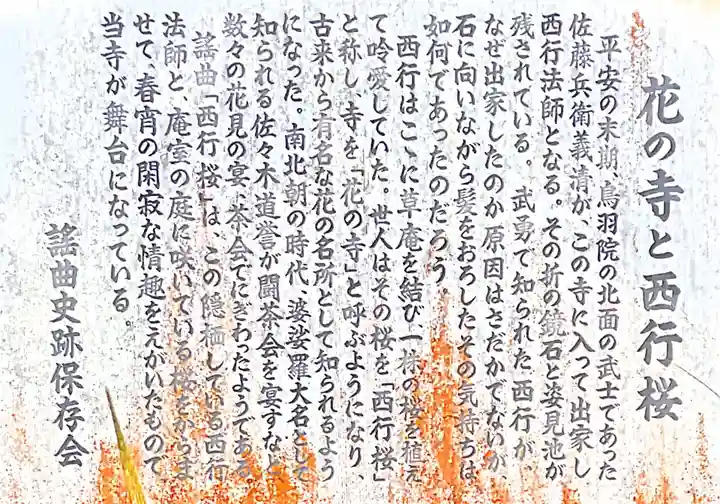 花の寺と西行桜
平安の末期、鳥羽院の北面の武士であった
佐藤兵衛義清が、この寺に入って出家し
西行法師となる。その折の鏡石と姿見池が
残されている。武勇で知られた西行が、
なぜ出家したのか原因はさだかでないが
石に向いながら髪をおろしたその気持ちは
如何であったのだろう。
西行はこゝに草庵を結び一株の桜を植え
て吟愛していた。世人はその桜を「西行桜」
と称し、寺を「花の寺」と呼ぶようになり、
古来から有名な花の名所として知られるよう
になった。南北朝の時代、婆娑羅大名として
知られる佐々木道誉が闘茶会を宴すなど
数々の花見の宴、茶会でにぎわったようである
謡曲「西行桜」は、この隠栖している西行
法師と、庵室の庭に咲いている桜をからま
せて、春宵の閑寂な情趣をえがいたもので
当寺が舞台になっている。
謡曲史跡保存会